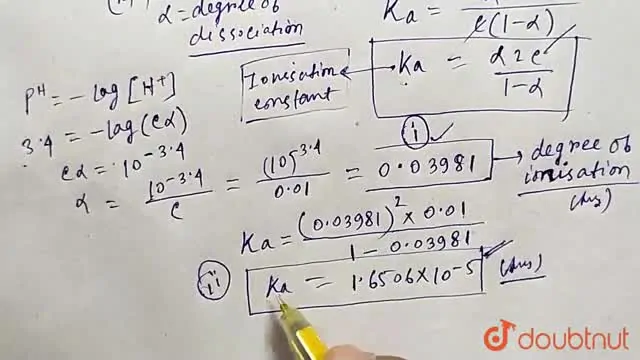 α = degree of
dissociation
Ka =
c(1-α)
Ionisation
constant
Ka = α2c
1-α
PH = -log[H+]
3.4 = -log(cα)
cα = 10-3.4
α = 10-3.4 = (10)-3.4 = 0.03981
c 0.01
i
degree of
ionisation
(Ans)
Ka = (0.03981)2 × 0.01
1 - 0.03981
ii
Ka = 1.6506×10-5 (Ans)
doubtnut